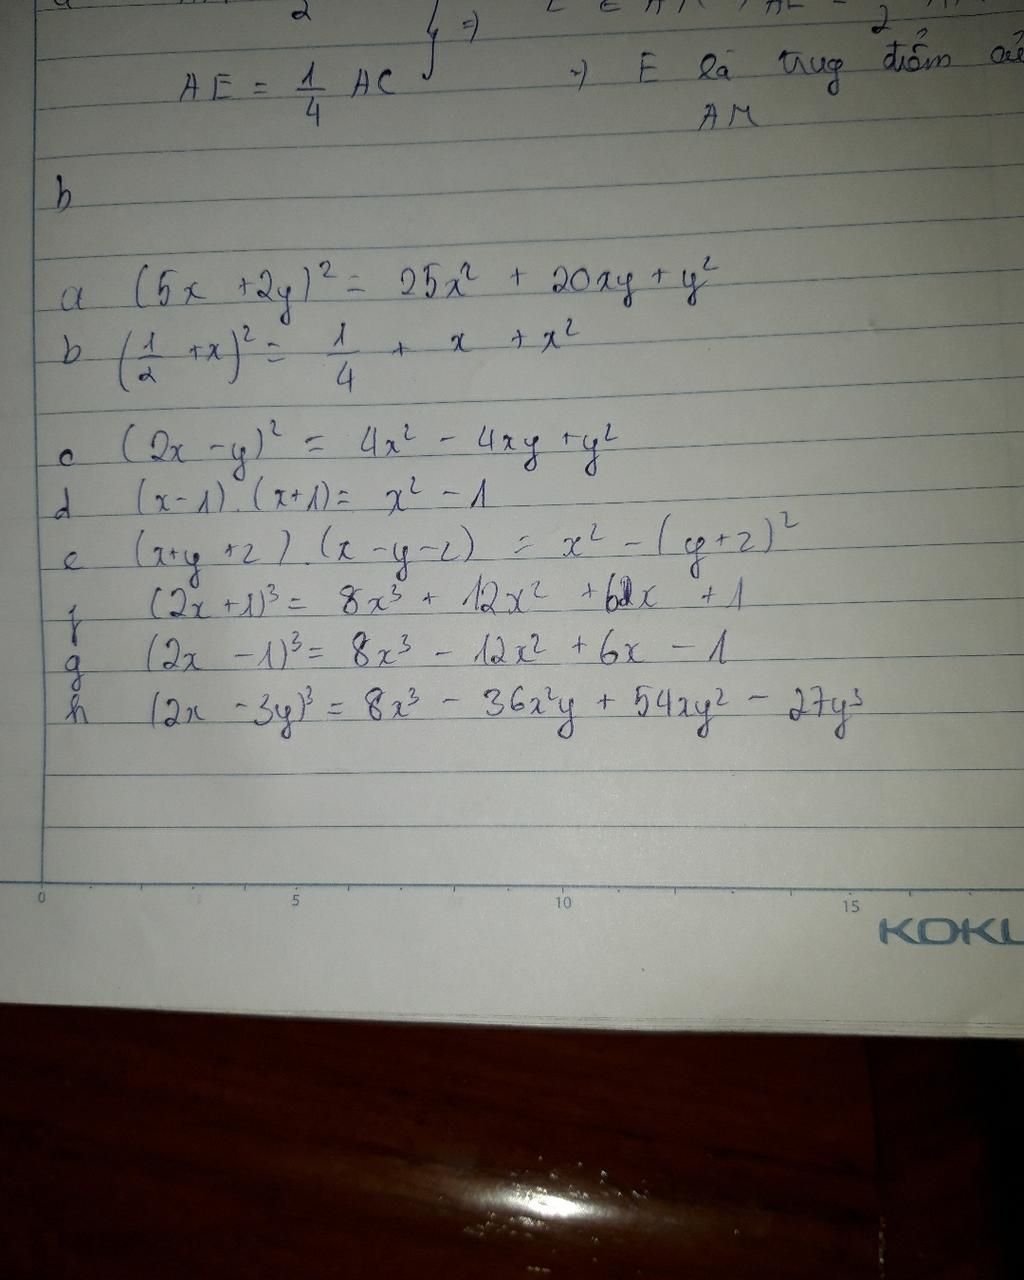 2 } =)
AE = 1/4 AC => E là trug điểm
AM
b
a (5x + 2y)² = 25x² + 20xy + y²
b (1/2 + x)² = 1/4 + x + x²
c (2x - y)² = 4x² - 4xy + y²
d (x-1).(x+1) = x² - 1
e (x+y+z).(x-y-z) = x² - (y+z)²
f (2x+1)³ = 8x³ + 12x² + 6x + 1
g (2x - 1)³ = 8x³ - 12x² + 6x - 1
h (2x - 3y)³ = 8x³ - 36x²y + 54xy² - 27y³
0 5 10 15